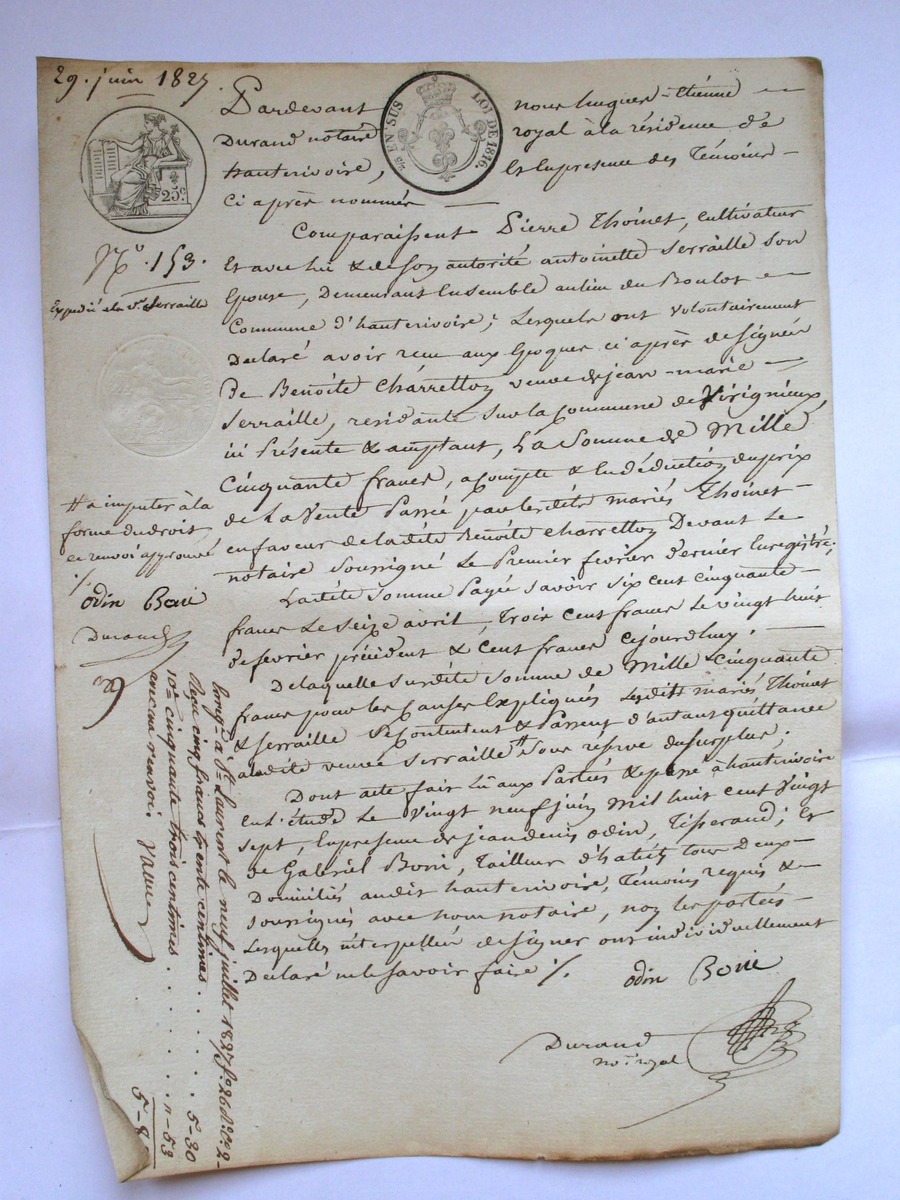 29. juin 1827
25 c.
EN SUS
LOI DE 1816.
N.o 153.
Expédié à la ve. Serraille
Pardevant nous hugues-étienne
Durand notaire royal à la résidence de
hauterivoire, Et En presence des Témoins
Ci après nommés
Comparaissent Pierre Thoinet, cultivateur
Et avec lui & de son autorité antoinette Serraille son
Epouse, Demeurant Ensemble au lieu du Boulot
Commune d'hauterivoire; Lesquels ont volontairement
Declaré avoir reçu aux Epoques ci après designées
De Benoîte Charretton veuve de jean-marie
Serraille, residante sur la Commune de Virignieux
ici Présente & acceptant, La Somme de Mille
Cinquante francs, acompte & En déduction du prix
de La Vente Passée par les dits mariés Thoinet
en faveur de la dite Benoîte Charretton Devant Le
notaire Soussigné Le Premier fevrier dernier Enregistré;
La dite Somme Payée Savoir Six cent cinquante
francs Le Seize avril, Trois Cent francs Le vingt huit
De fevrier précédent & Cent francs Cejourdhuy.
De laquelle Susdite Somme de Mille Cinquante
francs pour les causes Expliquées Lesdits mariés Thoinet
& Serraille Se Contentent & Passent d'autant quittance
a ladite veuve Serraille # Sous réserve du Surplus;
Dont acte fait Lû aux Parties & passé à hauterivoire
En L'étude Le Vingt neuf juin Mil huit Cent Vingt
Sept, En presence de jean denis Odin, Tisserand; Et
de Gabriel Boni, Tailleur d'habits tous Deux
Domiciliés audit hauterivoire, Témoins requis &
Soussignés avec nous notaire, non les parties
Lesquelles interpellées de signer ont individuellement
Declaré ne le Savoir faire %.
odin Boni
Durand
no.re royal
# a imputer à la
forme du droit,
ce renvoi approuvé
%.
odin Boni
Durand
Enreg.é à St. Laurent le neuf juillet 1827 fo. 26
Reçu cinq francs trente centimes 5-30
10e cinquante trois centimes 11-53
aucun renvoi.
5-8